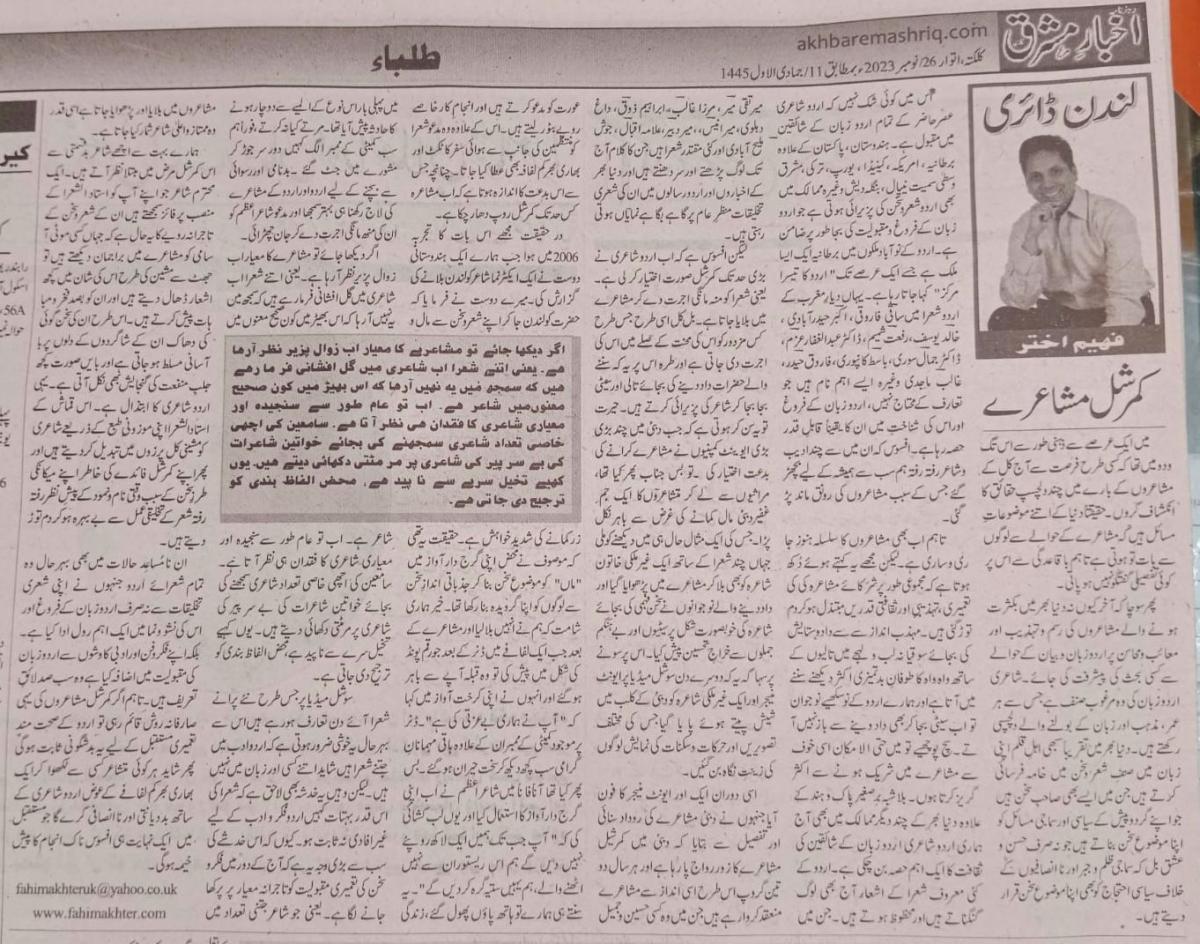 روزنامہ
اخبار مشرق
akhbaremashriq.com
کلکتہ، اتوار /26 نومبر 2023ء بمطابق /11 جمادی الاول 1445
طلباء
لندن ڈائری
فہیم اختر
کمرشل مشاعرے
میں ایک عرصے سے ذہنی طور سے اس تگ
ودو میں تھا کہ کسی طرح فرصت سے آج کل کے
مشاعروں کے بارے میں چند دلچسپ حقائق کا
انکشاف کروں۔ حقیقتاً دنیا کے اتنے موضوعات
مسائل ہیں کہ مشاعرے کے حوالے سے لوگوں
سے بات تو ہوتی ہے تاہم باقاعدگی سے اس پر
کوئی تفصیلی گفتگو نہیں ہو پاتی۔
پھر سوچا کہ آخر کیوں نہ دنیا بھر میں بکثرت
ہونے والے مشاعروں کی رسم و تہذیب اور
معائب و محاسن پر اردو زبان و بیان کے حوالے
سے کسی بحث کی پیشرفت کی جائے۔ شاعری
اردو زبان کی وہ مرغوب صنف ہے جس سے ہر
عمر، مذہب اور زبان کے بولنے والے دلچسپی
رکھتے ہیں۔ دنیا بھر میں تقریباً سبھی اہل قلم اپنی
زبان میں صنف شعر و سخن میں خامہ فرسائی
کرتے ہیں جن میں ایسے بھی صاحب سخن ہیں
جو اپنے گرد و پیش کے سیاسی اور سماجی مسائل کو
اپنا موضوع سخن بناتے ہیں جو نہ صرف حسن و
عشق بل کہ سماجی ظلم و جبر اور نا انصافیوں کے
خلاف سیاسی احتجاج کو بھی اپنا موضوع سخن قرار
دیتے ہیں۔
اس میں کوئی شک نہیں کہ اردو شاعری
عصر حاضر کے تمام اردو زبان کے شائقین
میں مقبول ہے۔ ہندوستان، پاکستان کے علاوہ
برطانیہ، امریکہ، کینیڈا، یورپ، ترکی، مشرق
وسطیٰ سمیت نیپال، بنگلہ دیش وغیرہ ممالک میں
بھی اردو شعر و سخن کی پزیرائی ہوتی ہے جو اردو
زبان کے فروغ و مقبولیت کی بجا طور پر ضامن
ہے۔ اردو کے نوآباد ملکوں میں برطانیہ ایک ایسا
ملک ہے جسے ایک عرصے تک "اردو کا تیسرا
مرکز" کہا جاتا رہا ہے۔ یہاں دیار مغرب کے
اردو شعرا میں ساقی فاروقی، اکبر حیدر آبادی،
خالد یوسف، رفعت شمیم، ڈاکٹر عبدالغفار عزم،
ڈاکٹر جمال سوری، باسط کانپوری، فاروق حیدر،
غالب ماجدی وغیرہ ایسے اہم نام ہیں جو
تعارف کے محتاج نہیں، اردو زبان کے فروغ
اور اس کی شناخت میں ان کا یقیناً قابل قدر
حصہ رہا ہے۔ افسوس کہ ان میں سے چند ادیب
و شاعر رفتہ رفتہ ہم سب سے ہمیشہ کے لیے بچھڑ
گئے جس کے سبب مشاعروں کی رونق ماند پڑ
گئی۔
تاہم اب بھی مشاعروں کا سلسلہ ہنوز جا
ری و ساری ہے۔ لیکن مجھے یہ کہتے ہوئے دکھ
ہوتا ہے کہ مجموعی طور پر شرکائے مشاعرہ کی کی
تعمیری، تہذیبی اور ثقافتی قدریں مبتذل ہو کر دم
توڑ گئی ہیں۔ مہذب انداز سے سے داد و ستایش
کی بجائے سوقیانہ لب و لہجے میں تالیوں کے
ساتھ واہ واہ کا طوفان بدتمیزی اکثر دیکھنے سننے
میں آتا ہے اور ہمارے اردو کے نوسکھیے نوجوان
تو اب سیٹی بجا کر بھی داد دینے سے باز نہیں آ
تے۔ سچ پوچھیے تو میں حتی الامکان اسی خوف
سے مشاعرے میں شریک ہونے سے اکثر
گریز کرتا ہوں۔ بلاشبہ بر صغیر پاک و ہند کے
علاوہ دنیا بھر کے چند دیگر ممالک میں بھی آج
ہماری اردو شاعری اردو زبان کے شائقین کی
ثقافت کا ایک اہم حصہ بن چکی ہے۔ اردو کے
کئی معروف شعرا کے اشعار آج بھی لوگ
گنگناتے ہیں اور محظوظ ہوتے ہیں۔ جن میں
میر تقی میر، مرزا غالب، ابراہیم ذوق، داغ
دہلوی، میر انیس، میر دبیر، علامہ اقبال، جوش
ملیح آبادی اور کئی مقتدر شعرا ہیں جن کا کلام آج
تک لوگ پڑھتے اور سر دھنتے ہیں اور دنیا بھر
کے اخباروں اور اردو رسالوں میں ان کی شعری
تخلیقات منظر عام پر گاہے بگاہے نمایاں ہوتی
رہتی ہیں۔
لیکن افسوس ہے کہ اب اردو شاعری نے
بڑی حد تک کمرشل صورت اختیار کر لی ہے۔
یعنی شعرا کو منہ مانگی اجرت دے کر مشاعرے
میں بلایا جاتا ہے۔ بل کل اسی طرح جس طرح
کسی مزدور کو اس کی محنت کے صلے میں اس کی
اجرت دی جاتی ہے اور طرہ اس پر یہ کہ سننے
والے حضرات داد دینے کی بجائے تالی اور سیٹی
بجا بجا کر شاعر کی پزیرائی کرتے ہیں۔ حیرت
تو یہ سن کر ہوتی ہے کہ جب دبئی میں چند بڑی
بڑی ایونٹ کمپنیوں نے مشاعرے کرانے کی
بدعت اختیار کی۔ تو بس جناب پھر کیا تھا،
مراثیوں سے لے کر متشاعروں کا ایک جم
غفیر دبئی مال کمانے کی غرض سے باہر نکل
پڑا۔ جس کی ایک مثال حال ہی میں دیکھنے کو ملی
جہاں چند شعرا کے ساتھ ایک غیر ملکی خاتون
شاعرہ کو بھی بلا کر مشاعرے میں پڑھوایا گیا اور
داد دینے والے نوجوانوں نے سخن فہمی کی بجائے
شاعرہ کی خوبصورت شکل پر سیٹیوں اور بے ہنگم
جملوں سے خراج تحسین پیش کیا۔ اس پر سونے
پر سہاگہ یہ کہ دوسرے دن سوشل میڈیا پر ایونٹ
منیجر اور ایک غیر ملکی شاعرہ کو دبئی کے کلب میں
شیش پیتے ہوئے پایا گیا جس کی مختلف
تصویریں اور حرکات و سکنات کی نمایش لوگوں
کی زینت نگاہ بن گئیں۔
اسی دوران ایک اور ایونٹ منیجر کا فون
آیا جنہوں نے دبئی مشاعرے کی روداد سنائی
اور تفصیل سے بتایا کہ دبئی میں کمرشل
مشاعرے کا زور رواج پا رہا ہے اور ہر سال دو
تین گروپ اس طرح اسی انداز سے مشاعرے
منعقد کروا رہے ہیں جن میں وہ کسی حسین و جمیل
عورت کو مدعو کرتے ہیں اور انجام کار خاصے
روپے بٹور لیتے ہیں۔ اس کے علاوہ وہ مدعو شعرا
کو منتظمین کی جانب سے ہوائی سفر کا ٹکٹ اور
بھاری بھر کم لفافہ بھی عطا کیا جاتا۔ چنانچہ جس
سے اس بدعت کا اندازہ ہوتا ہے کہ اب مشاعرہ
کس حد تک کمرشل روپ دھار چکا ہے۔
در حقیقت مجھے اس بات کا تجربہ
2006 میں ہوا جب ہمارے ایک ہندوستانی
دوست نے ایک ایکٹر نما شاعر کو لندن بلانے کی
گزارش کی۔ میرے دوست نے فرمایا کہ
حضرت کو لندن جا کر اپنے شعر و سخن سے مال و
زر کمانے کی شدید خواہش ہے۔ حقیقت یہ تھی
کہ موصوف نے محض اپنی گرج دار آواز میں
"ماں" کو موضوع سخن بنا کر جذباتی انداز سخن
سے لوگوں کو اپنا گرویدہ بنا رکھا تھا۔ خیر ہماری
شامت کہ ہم نے انہیں بلا لیا اور مشاعرے کے
بعد جب ایک لفافے میں ڈنر کے بعد جو رقم پونڈ
کی شکل میں پیش کی تو وہ قبلہ آپے سے باہر
ہو گئے اور انہوں نے اپنی کرخت آواز میں کہا
کہ "آپ نے ہماری بے عزتی کی ہے"۔ ڈنر
پر موجود کمیٹی کے ممبران کے علاوہ باقی مہمانان
گرامی سب کچھ دیکھ کر سخت حیران ہو گئے۔ بس
پھر کیا تھا آنا فاناً میں شاعر اعظم نے اب اپنی
گرج دار آواز کا استعمال کیا اور یوں لب کشائی
کی کہ "آپ جب تک ہمیں ایک لاکھ روپئے
نہیں دیں گے ہم اس ریستوران سے نہیں
اٹھنے والے، ہم یہیں ستیہ گرہ کر دیں گے"۔ یہ
سنتے ہی ہمارے تو ہاتھ پاؤں پھول گئے، زندگی
میں پہلی بار اس نوع کے المیے سے دو چار ہونے
کا حادثہ پیش آیا تھا۔ مرتے کیا نہ کرتے، فوراً ہم
سب کمیٹی کے ممبر الگ کہیں دور سر جوڑ کر
مشورے میں جٹ گئے۔ بدنامی اور رسوائی
سے بچنے کے لیے اردو اور اردو کے مشاعرے
کی لاج رکھنا ہی بہتر سمجھا اور مدعو شاعر اعظم کو
ان کی منھ مانگی اجرت دے کر جان چھڑائی۔
اگر دیکھا جائے تو مشاعرے کا معیار اب
زوال پزیر نظر آ رہا ہے۔ یعنی اتنے شعرا اب
شاعری میں گل افشانی فرما رہے ہیں کہ سمجھ میں
یہ نہیں آ رہا کہ اس بھیڑ میں کون صحیح معنوں میں
اگر دیکھا جائے تو مشاعرے کا معیار اب زوال پزیر نظر آرہا
ہے۔ یعنی اتنے شعرا اب شاعری میں گل افشانی فرما رہے
ہیں کہ سمجھ میں یہ نہیں آرہا کہ اس بھیڑ میں کون صحیح
معنوں میں شاعر ہے۔ اب تو عام طور سے سنجیدہ اور
معیاری شاعری کا فقدان ہی نظر آتا ہے۔ سامعین کی اچھی
خاصی تعداد شاعری سمجھنے کی بجائے خواتین شاعرات
کی بے سر پیر کی شاعری پر مر مٹتی دکھائی دیتے ہیں۔ یوں
کہیے تخیل سرے سے نا پید ہے، محض الفاظ بندی کو
ترجیح دی جاتی ہے۔
شاعر ہے۔ اب تو عام طور سے سنجیدہ اور
معیاری شاعری کا فقدان ہی نظر آتا ہے۔
سامعین کی اچھی خاصی تعداد شاعری سمجھنے کی
بجائے خواتین شاعرات کی بے سر پیر کی
شاعری پر مر مٹتی دکھائی دیتے ہیں۔ یوں کہیے
تخیل سرے سے نا پید ہے، محض الفاظ بندی کو
ترجیح دی جاتی ہے۔
سوشل میڈیا پر جس طرح نئے پرانے
شعرا آئے دن تعارف ہو رہے ہیں اس سے
بہر حال یہ خوشی ضرور ہوتی ہے کہ اردو ادب میں
جتنے شعرا ہیں شاید اتنے کسی اور زبان میں نہیں
ہیں۔ لیکن وہیں یہ خدشہ بھی لاحق ہے کہ شعرا کی
اس قدر بہتات کہیں اردو فکر و ادب کے لیے
غیر افادی نہ ثابت ہو۔ کیوں کہ اس خدشے کی
سب سے بڑی وجہ یہ ہے کہ آج کے دور میں فکر و
سخن کی تعمیری مقبولیت کو تاجرانہ معیار پر پرکھا
جانے لگا ہے۔ یعنی جو شاعر جتنی تعداد میں
مشاعروں میں بلایا اور پڑھوایا جاتا ہے اسی قدر
وہ ممتاز و اعلیٰ شاعر شمار کیا جاتا ہے۔
ہمارے بہت سے اچھے شاعر بدقسمتی سے
اس کمرشل مرض میں مبتلا نظر آتے ہیں۔ ایک
محترم شاعر جو اپنے آپ کو استاد الشعرا کے
منصب پر فائز سمجھتے ہیں ان کے شعر و سخن کے
تاجرانہ رویے کا یہ حال ہے کہ جہاں کسی موٹی آ
سامی کو مشاعرے میں براجمان دیکھتے ہیں تو
جھٹ سے مشین کی طرح اس کی شان میں کچھ
اشعار ڈھال دیتے ہیں اور ان کو بصد فخر و مبا
ہات پیش کرتے ہیں۔ اس طرح ان کی سخن گوئی
کی دھاک ان کے شاگردوں کے دلوں پر با
آسانی مسلط ہو جاتی ہے اور بایں صورت کچھ
جلب منفعت کی گنجایش بھی نکل آتی ہے۔ یہی
اردو شاعری کا ابتذال ہے۔ اس قماش کے
استاد الشعرا اپنی موزونی طبع کے ذریعے شاعری
کو مشینی کل پرزوں میں تبدیل کر دیتے ہیں اور
پھر اپنے کمرشل فائدے کی خاطر اپنے میکانکی
طرز سخن کے سبب وقتی نام و نمود کے پیش نظر رفتہ
رفتہ شعر کے تخلیقی عمل سے بے بہرہ ہو کر دم توڑ
دیتے ہیں۔
ان نا مساعد حالات میں بھی بہر حال وہ
تمام شعرائے اردو جنہوں نے اپنی شعری
تخلیقات سے نہ صرف اردو زبان کے فروغ اور
اس کی نشوونما میں ایک اہم رول ادا کیا ہے۔
بلکہ اپنے فکر و فن اور ادبی کاوشوں سے اردو زبان
کی مقبولیت میں اضافہ کیا ہے وہ سب صد لائق
تعریف ہیں۔ تاہم اگر کمرشل مشاعروں کی یہی
صارفانہ روش قائم رہی تو اردو کے صحت مند
تعمیری مستقبل کے لیے یہ بدشگونی ثابت ہوگی
پھر شاید ہر کوئی متشاعر کسی سے لکھوا کر ایک
بھاری بھر کم لفافے کے عوض اردو شاعری کے
ساتھ بددیانتی اور نا انصافی کرے گا جو مستقبل
میں ایک نہایت ہی افسوس ناک انجام کا پیش
خیمہ ہوگی۔
fahimakhteruk@yahoo.co.uk
www.fahimakhter.com
کیر
56A